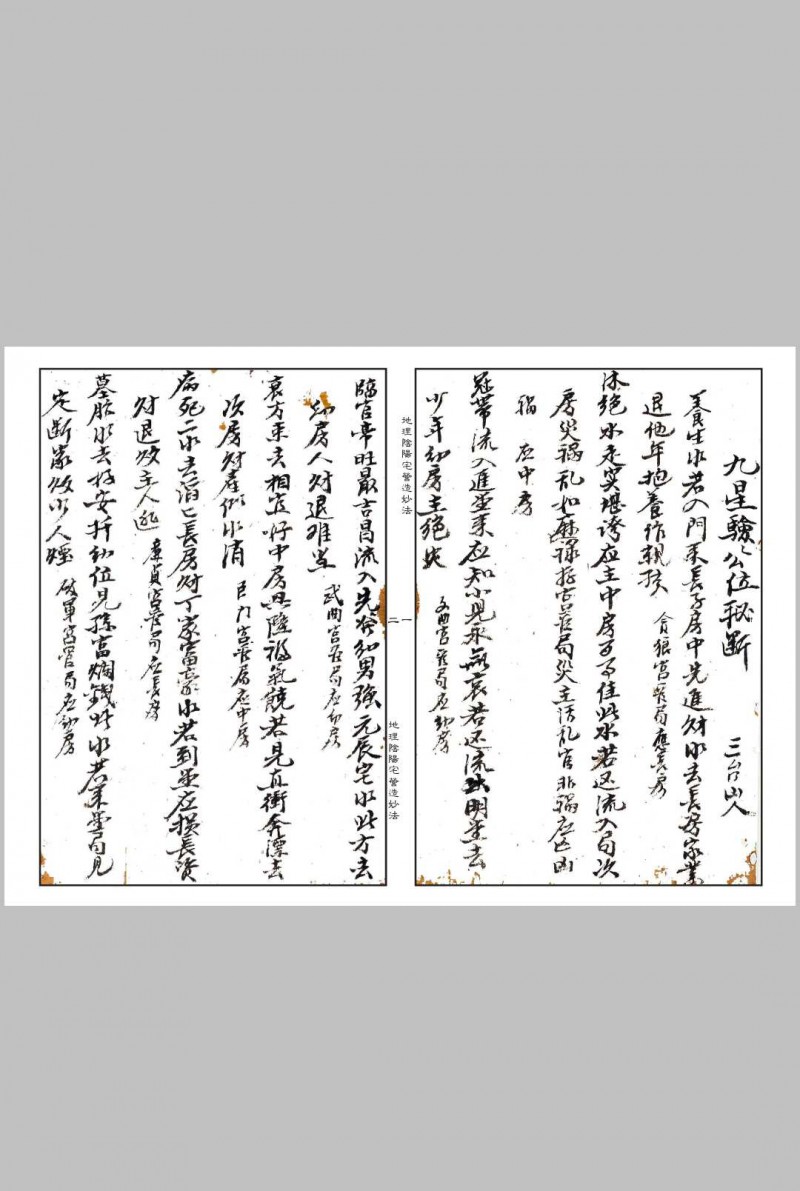 九星驗公位秘斷
三台山人
養生水若入門來長房中先進財水去長房家業
退他年抱養作親孩
貪狼宮管局應長房
沐絕水走実堪誇应主中房百事佳此水若迂流入局次
房災禍乱如麻禄存宮管局災主活乱官非禍应凶
禍应中房
冠帶流入進堂來应知小兒永無哀若还流明堂去
少年幼房主絕
文曲宮管局应幼房
地理陰陽宅營造妙法
一
二
地理陰陽宅營造妙法
臨官帝旺最吉昌流入先發幼男強元辰宅水此方去
幼房人財退难当
武曲宮管局应幼房
衰方來去相宜好中房興隆福氣饒若見直衝奔漂去
次房財產似水消
巨门宮管局应中房
病死二水去滔亡長房財丁家富豪水若到堂应損長賢
財退敗主人逃
廉貞宮管局应長房
墓胎水去好安扦幼位兒孫富爛錢此水若來堂局見
定斷家敗少人煙
破軍宮管局应幼房